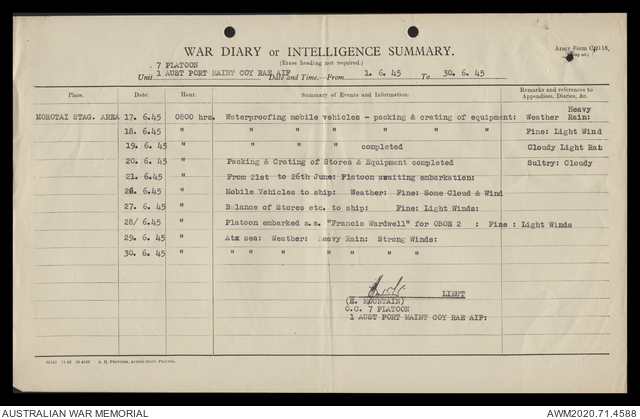 WAR DIARY or INTELLIGENCE SUMMARY.
(Erase heading not required.)
Army Form C2118,
7 PLATOON
Unit 1 AUST PORT MAINT COY RAE AIF Date and Time.—From 1. 6. 45 To 30. 6. 45
Place. Date. Hour. Summary of Events and Information. Remarks and references to Appendices, Diaries, &c.
MOROTAI STAG. AREA 17. 6.45 0800 hrs. Waterproofing mobile vehicles - packing & crating of equipment: Weather Heavy Rain:
18. 6.45 " " " " " " " Fine: Light Wind
19. 6. 45 " " " completed Cloudy Light Rai
20. 6. 45 " Packing & Crating of Stores & Equipment completed Sultry: Cloudy
21. 6.45 " From 21st to 26th June: Platoon awaiting embarkation:
26. 6.45 " Mobile Vehicles to ship: Weather: Fine: Some Cloud & Wind
27. 6.45 " Balance of Stores etc. to ship: Fine: Light Winds:
28/ 6.45 " Platoon embarked s.s. "Francis Wardwell" for OBOE 2 : Fine : Light Winds
29. 6. 45 " Atx sea: Weather: Heavy Rain: Strong Winds:
30. 6. 45 " " " " " " " "
LIEUT
(E. MOUNTAIN)
O.C. 7 PLATOON
1 AUST PORT MAINT COY RAE AIF:
A. H. Pettifer, Acting Govt. Printer.
AUSTRALIAN WAR MEMORIAL
AWM2020.71.4588